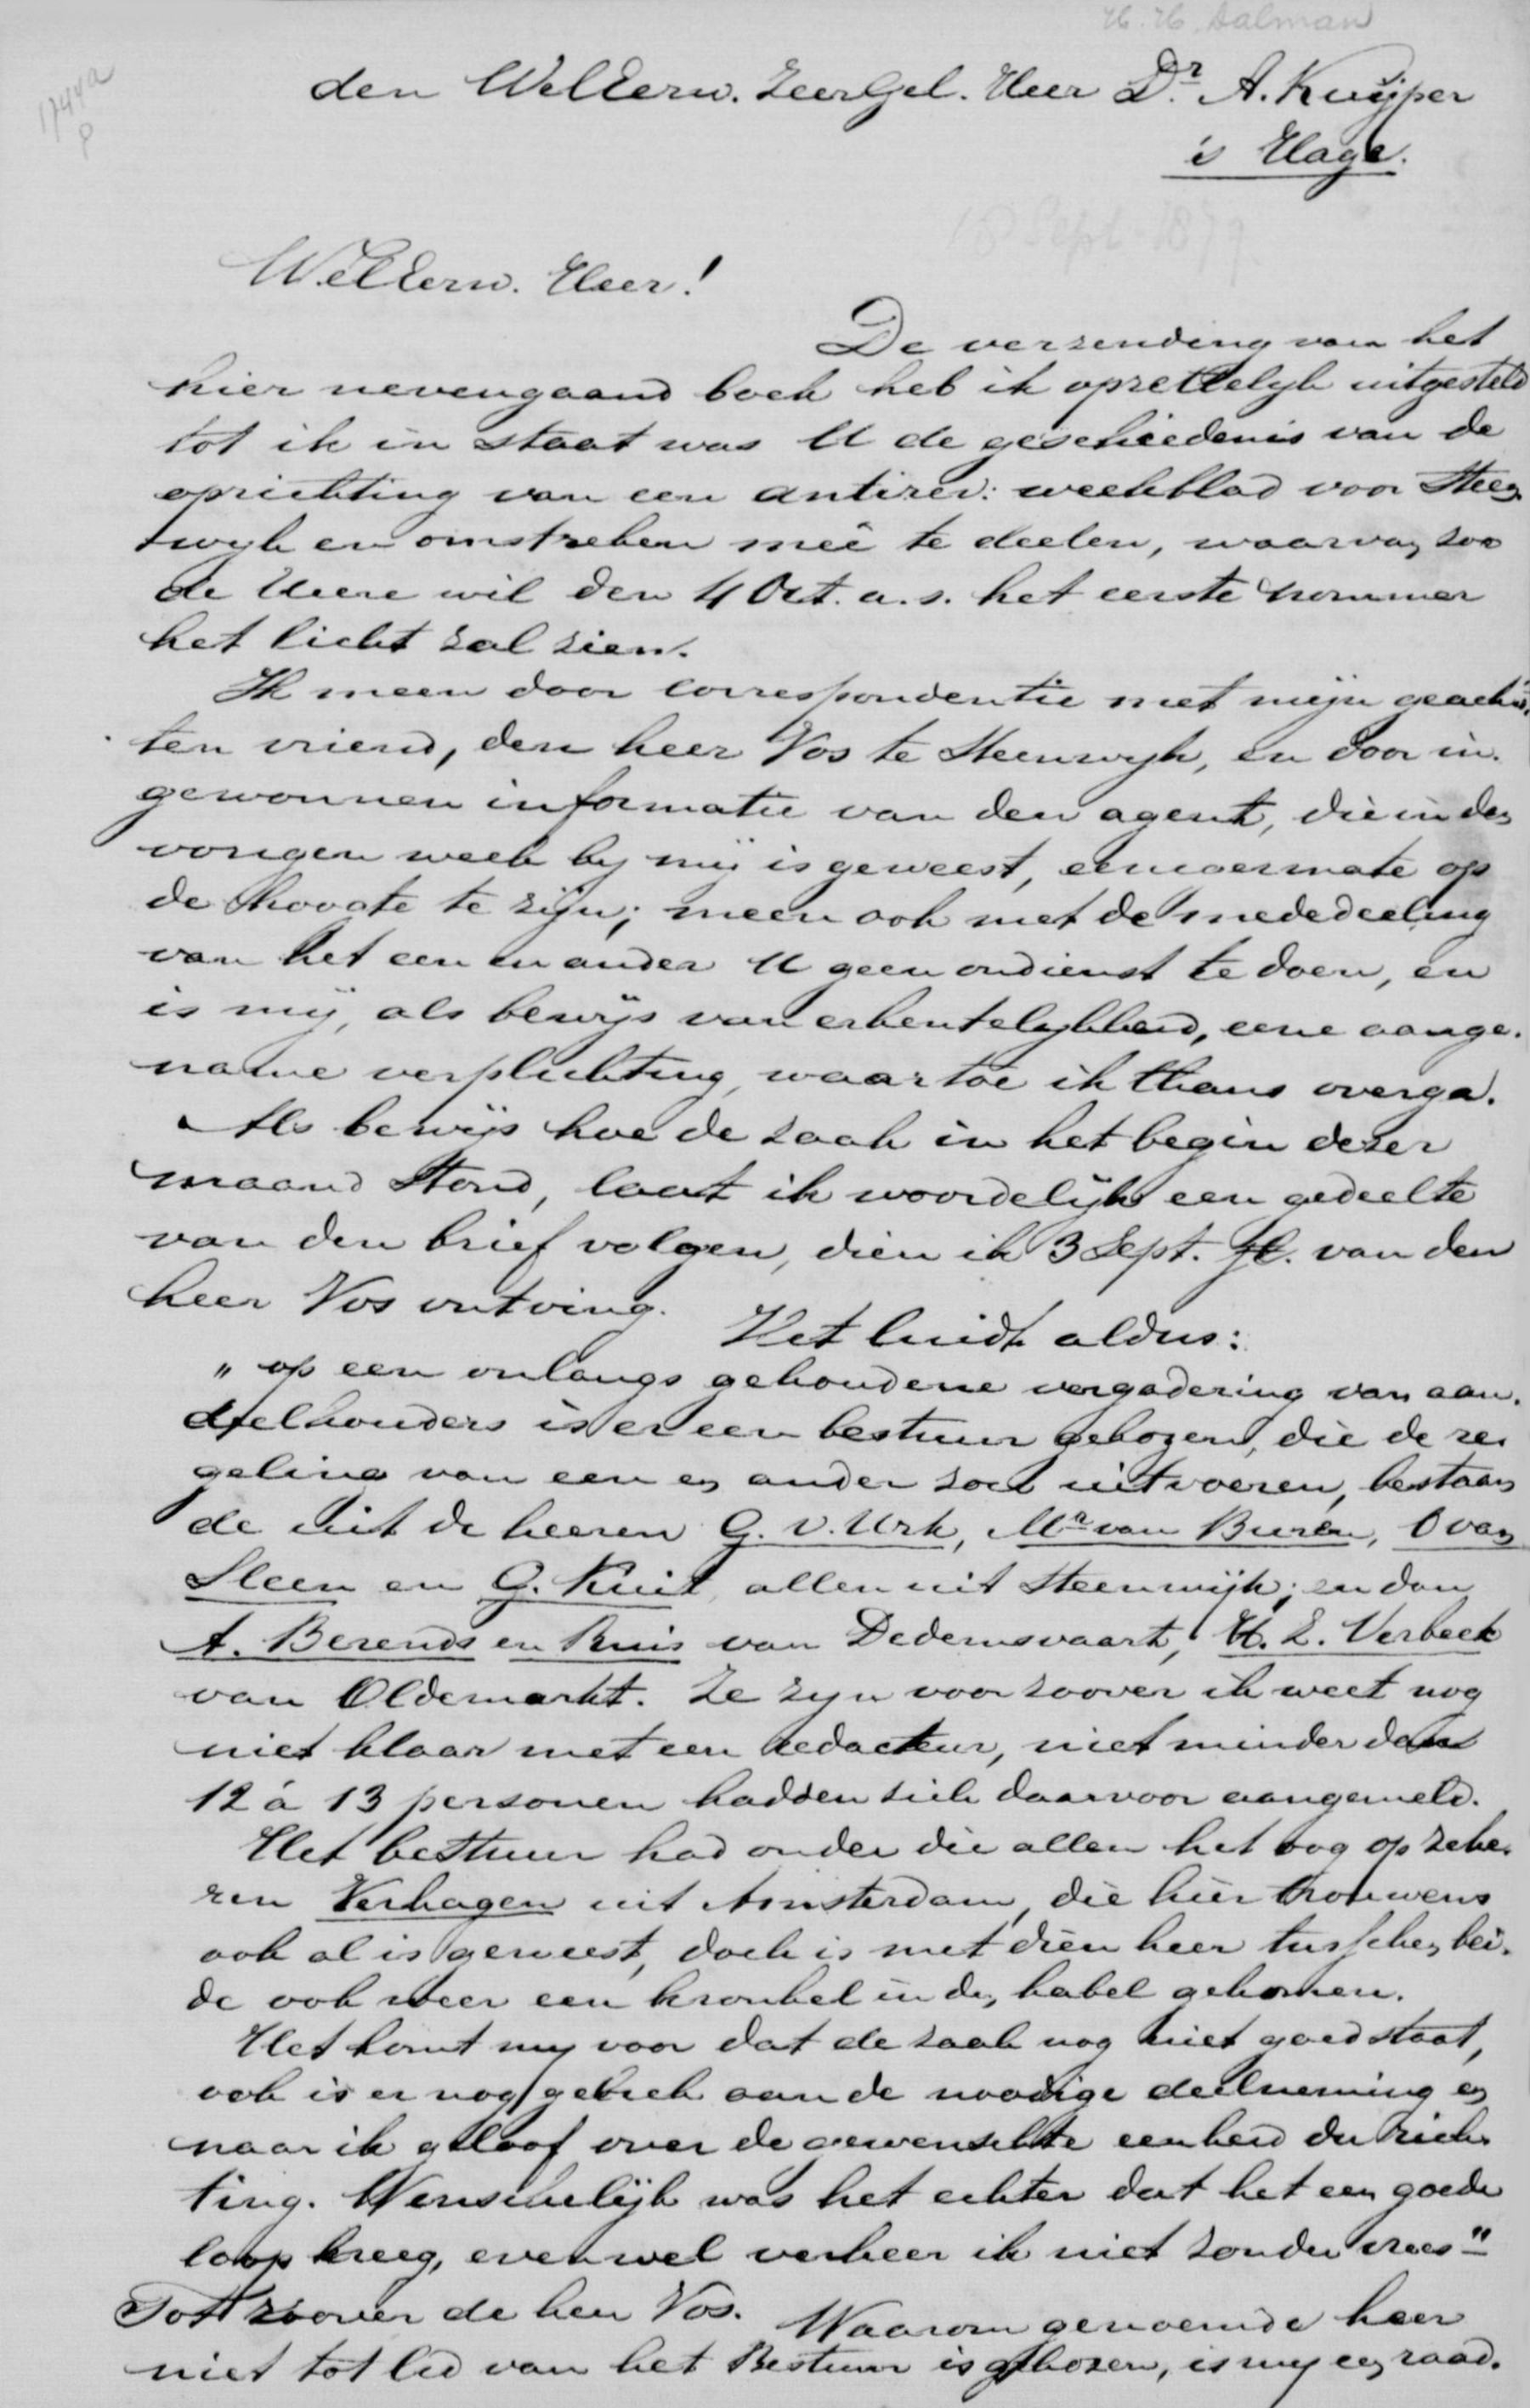 H. H. Salman
1744a
P
den WelEerw. ZeerGel. Heer Dr. A. Kuijper
's Hage.
18 Sept 1879
WelEerw. Heer!
De verzending van het
hier nevengaand boek heb ik opzettelijk uitgesteld
tot ik in staat was U de geschiedenis van de
oprichting van een antirev: weekblad voor Steen
wijk en omstreken meê te deelen, waarvan zoo
de Heere wil den 4 Oct. a.s. het eerste nommer
het licht zal zien.
Ik meen door correspondentie met mijn geach-
ten vriend, den heer Vos te Steenwijk, en door in-
gewonnen informatie van den agent, die in den
vorigen week by mij is geweest, eenigermate op
de hoogte te zijn; meen ook met de mededeeling
van het een en ander U geen ondienst te doen, en
is mij, als bewijs van erkentelykheid, eene aange-
name verplichting, waartoe ik thans overga.
Als bewijs hoe de zaak in het begin dezer
maand stond, laat ik woordelijk een gedeelte
van den brief volgen, dien ik 3 Sept. jl. van den
heer Vos ontving. Het luidt aldus:
" op een onlangs gehoudene vergadering van aan-
deelhouders is er een bestuur gekozen, die de re-
geling van een en ander zou uitvoeren, bestaan
de uit de heeren G. v. Urk, Mr van Buren, O van
Sleen en G. Kuit, allen uit Steenwijk; en dan
A. Berends en Ruis van Dedemsvaart, H. L. Verbeek
van Oldemarkt. Ze zyn voor zoover ik weet nog
niet klaar met een redacteur, niet minder dan
12 à 13 personen hadden zich daarvoor aangemeld.
Het bestuur had onder die allen het oog op zeke-
ren Verhagen uit Amsterdam, die hier trouwens
ook al is geweest, doch is met dien heer tusschen bei-
de ook weer een kronkel in den kabel gekomen.
Het komt my voor dat de zaak nog niet goed staat,
ook is er nog gebrek aan de noodige deelneming en
naar ik geloof over de gewenschte eenheid der rich-
ting. Wenschelijk was het echter dat het een goede
loop kreeg, evenwel verkeer ik niet zonder vrees"
Tot zoover de heer Vos. Waarom genoemde heer
niet tot lid van het Bestuur is gekozen, is my een raad-